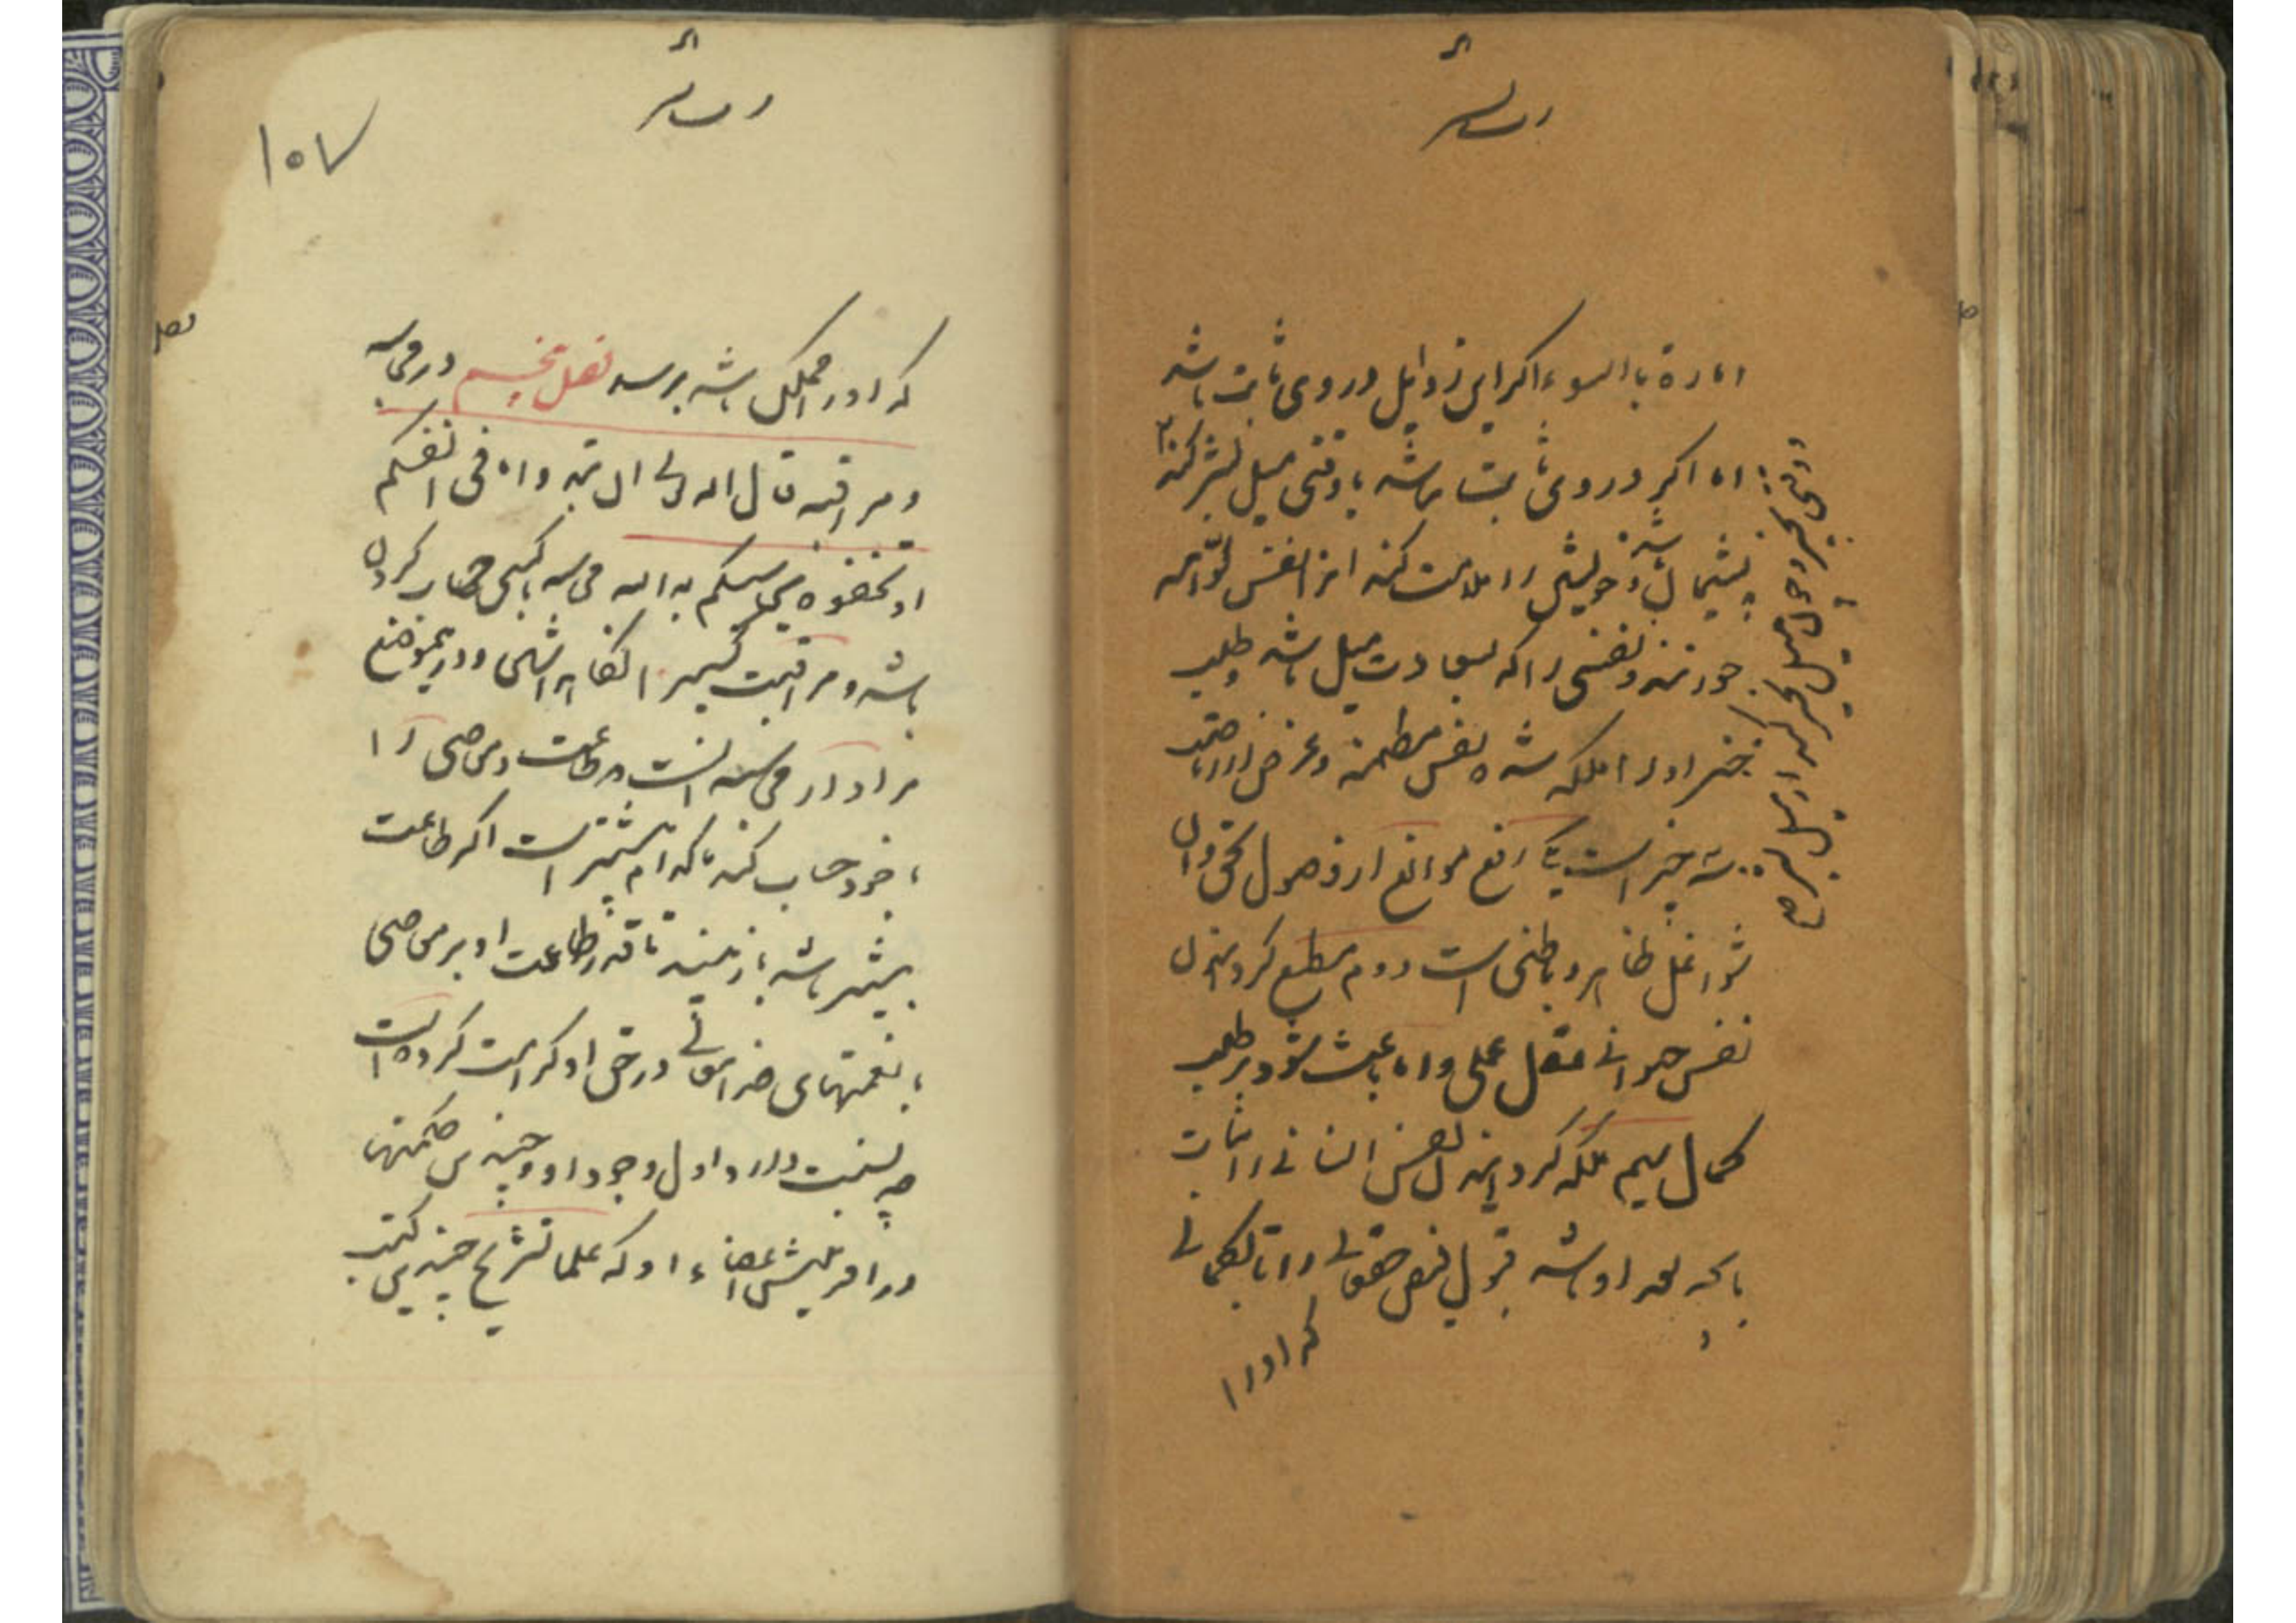 اماره باالسوء اگر این زوایل در وی ثابت باشد
اما اگر در وی ثابت نباشد با وقتی میل بشر کند
پشیمان شود و خویش را ملامت کند از النفس لوّامه
خوانند و نفسی را که بسعادت میل باشد و طلب
خیر او را ملکه شده نفس مطمئنه و غرض از ریاضت
سه چیز است یکی رفع موانع از وصول بحق و آن
شواغل ظاهر و باطنی است دوم مطیع گردانیدن
نفس حیوانی عقل عملی را که باعث شود بر طلب
کمال سیم ملکه گردانیدن نفس انسانی را ثبات
بآنچه معد او باشد قبول فیض حق تعالی را تا بکمالی
که او را
۱۵۷
که او را ممکن باشد برسد فصل پنجم در محاسبه
و مراقبه قال الله تعالی ان تبدوا ما فی انفسکم
او تخفوه یحاسبکم به الله محاسبه با کسی حساب کردن
باشد و مراقبت کسی را نگاه داشتن و در این موضع
مراد از محاسبه آنست که طاعت و معاصی را
با خود حساب کند تا کدام بیشتر است اگر طاعت
بیشتر باشد باز بیند تا قدر طاعت او بر معاصی
با نعمتهای خدای تعالی در حق او کرامت کرده است
چه نسبت دارد اول وجود او و چندین حکمتها
در آفرینش اعضاء او که علما تشریح چندین کتب